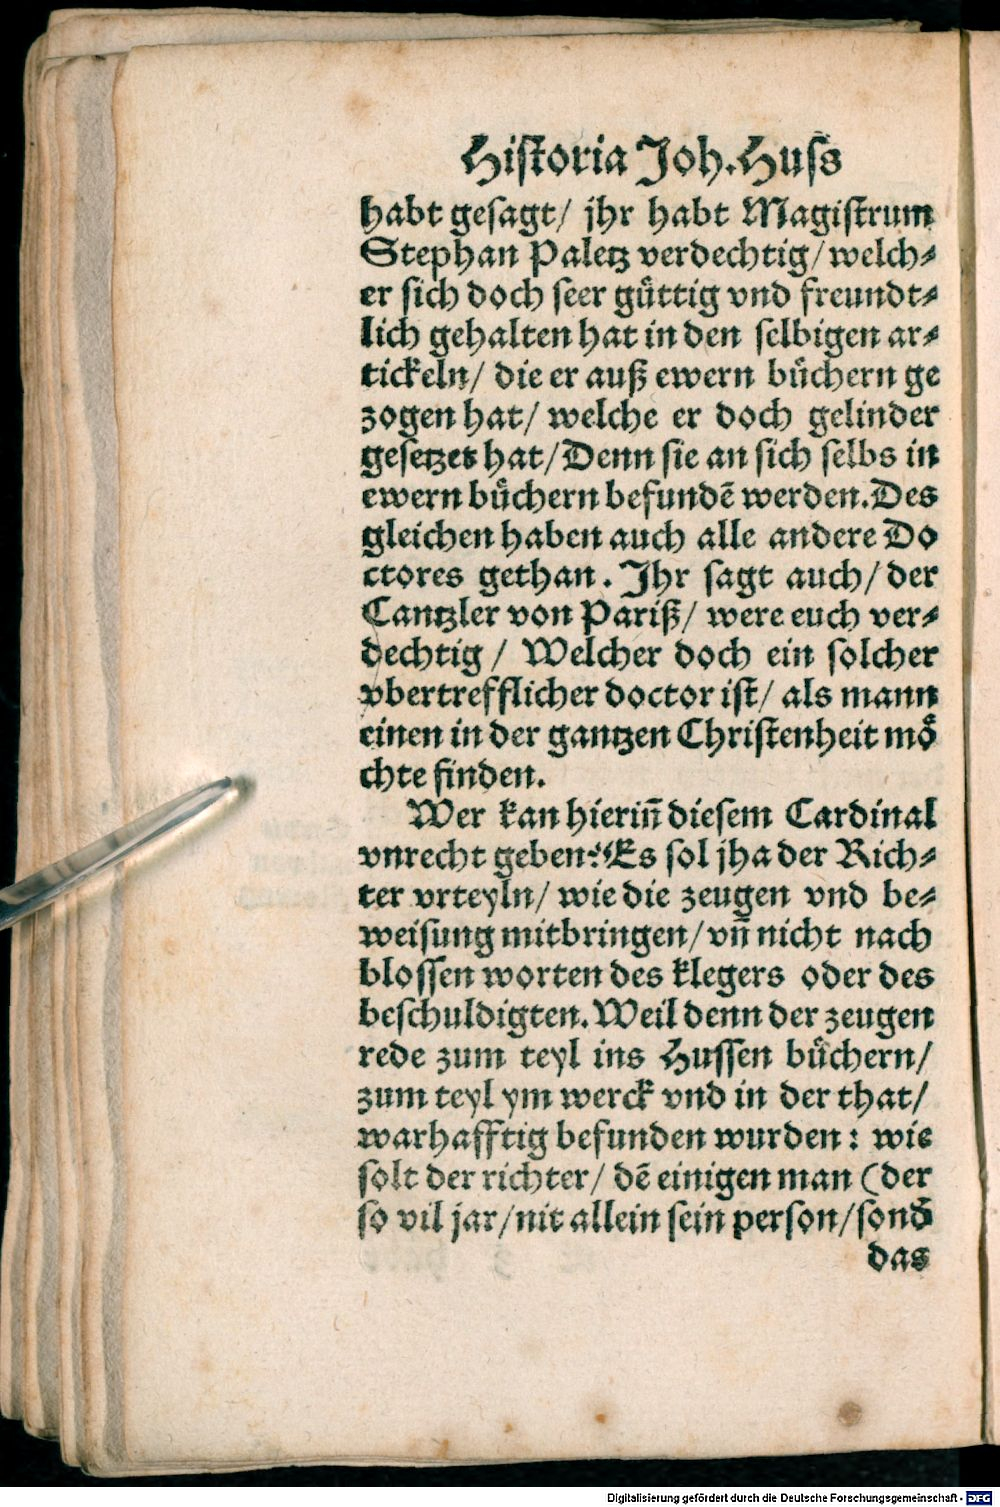 Historia Joh. Huss
habt gesagt/ jhr habt Magistrum
Stephan Paletz verdechtig/ welch⸗
er sich doch seer guͤttig vnd freundt⸗
lich gehalten hat in den selbigen ar⸗
tickeln/ die er auß ewern buͤchern ge
zogen hat/ welche er doch gelinder
gesetzet hat/ Denn sie an sich selbs in
ewern buͤchern befundẽ werden. Des
gleichen haben auch alle andere Do
ctores gethan. Jhr sagt auch/ der
Cantzler von Pariß/ were euch ver⸗
dechtig/ Welcher doch ein solcher
vbertrefflicher doctor ist/ als mann
einen in der gantzen Christenheit moͤ
chte finden.
Wer kan hierin̄ diesem Cardinal
vnrecht geben? Es sol jha der Rich⸗
ter vrteyln/ wie die zeugen vnd be⸗
weisung mitbringen/ vn̄ nicht nach
blossen worten des klegers oder des
beschuldigten. Weil denn der zeugen
rede zum teyl ins Hussen buͤchern/
zum teyl ym werck vnd in der that/
warhafftig befunden wurden: wie
solt der richter/ dẽ einigen man (der
so vil jar/ nit allein sein person/ sond̄
das
Digitalisierung gefördert durch die Deutsche Forschungsgemeinschaft - DFG